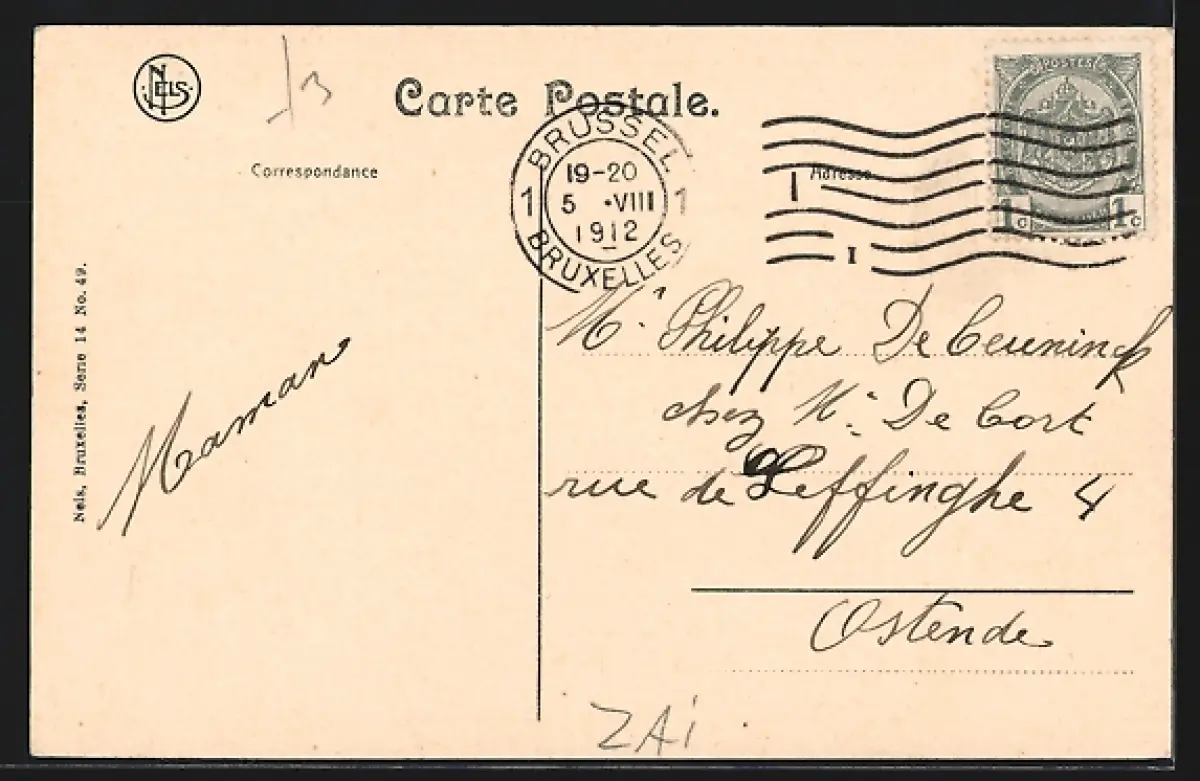 NELS
Carte Postale.
Correspondance
Adresse
BRUSSEL
1 19-20 1
5 ·VIII
1912
BRUXELLES
POSTES
1c 1c
I
I
Nels, Bruxelles, Serie 14 No. 49.
Maman
Mr. Philippe De Ceuninck
chez Mr. De Cort
rue de Leffinghe 4
Ostende
ZAi